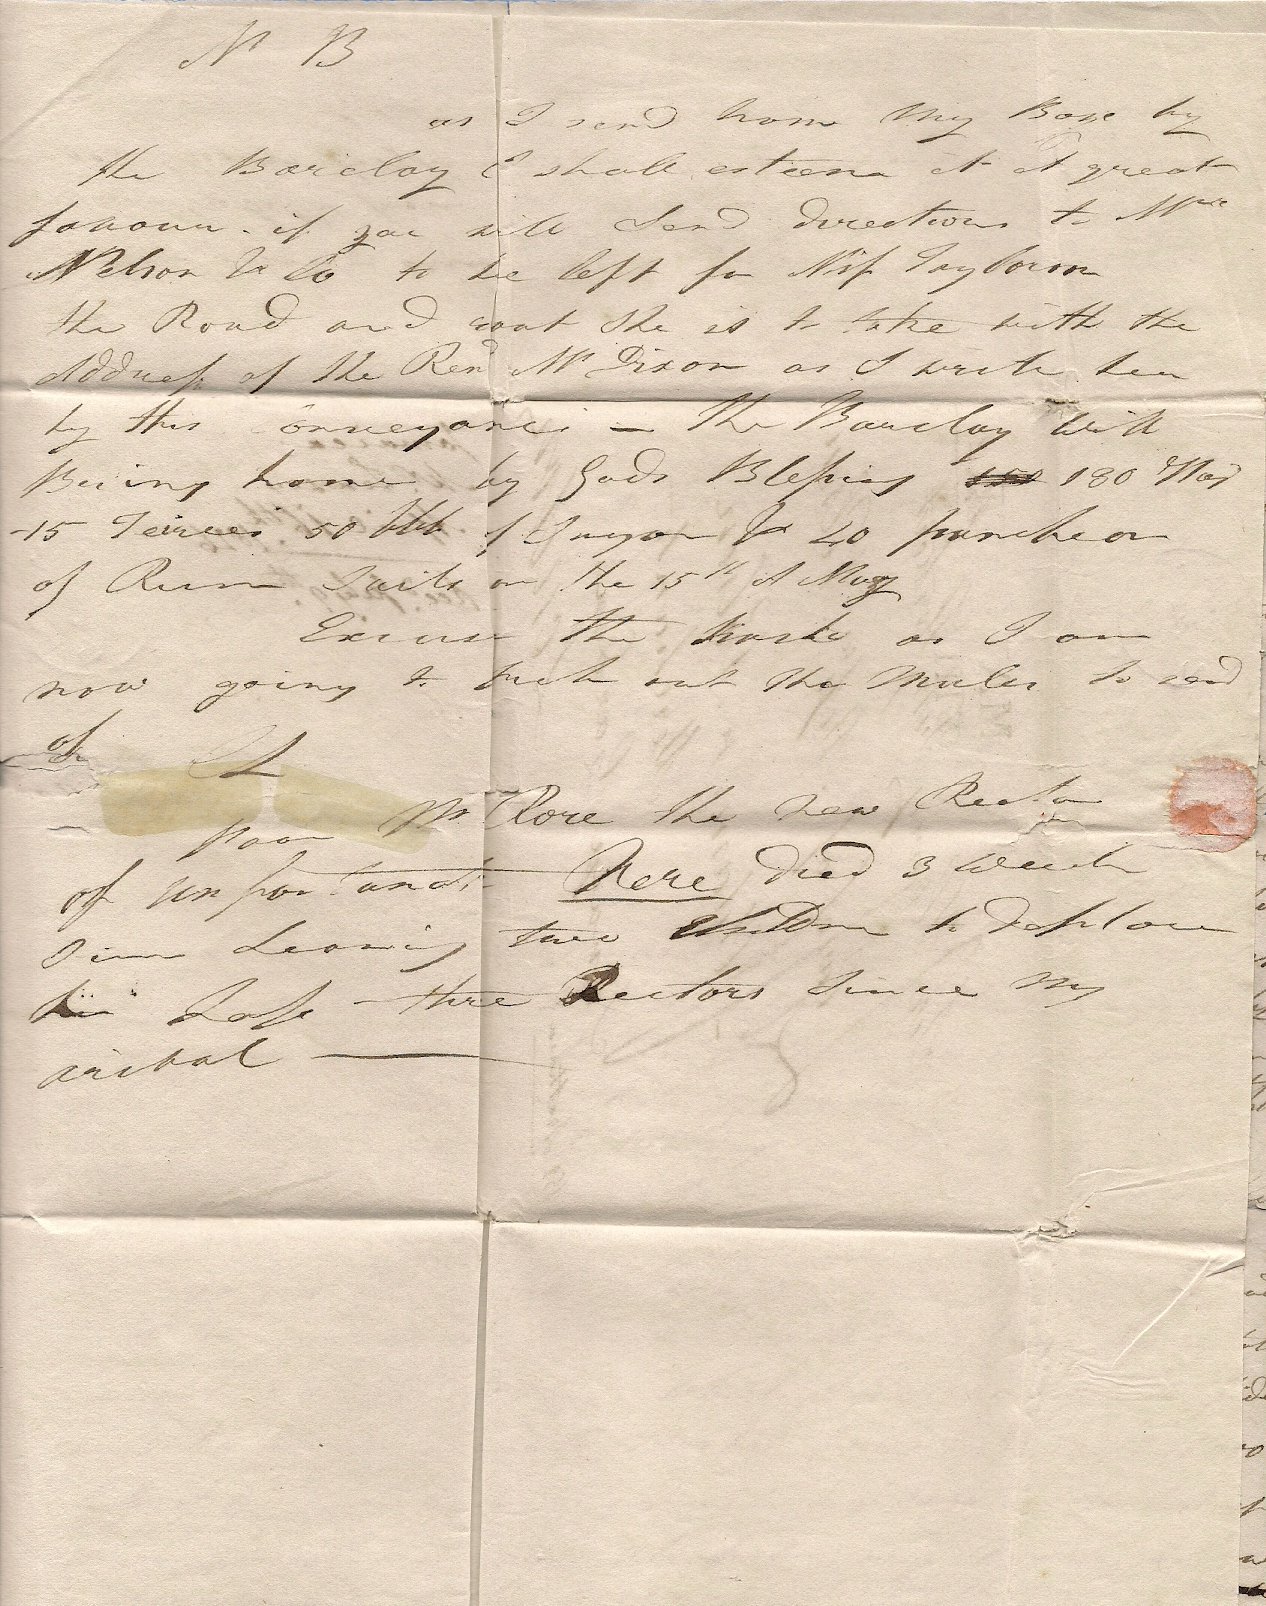 N B
as I send home My Boxe by
the Barclay I shall esteem it A great
favour if you will Send directions to Messrs
Nelson & Co to be left for Miss Taylor on
the Road and wat She is to take with the
Adduess of the Revd Mr Dixon as I write her
by this Conveyance — The Barclay will
Bring home by Gods Blessing 180 Hhds
-15 Teirces 50 bbls of Suger & 40 puncheon
of Rum Sails on the 15th of May
Excuse the haste as I am
now going to the Mules to send
of
poor Mr Rore the new Rector
of unfortunate Nere died 3 Week
Sinc Leaving two Children to deplore
his Loss — three Rectors Since My
arival —